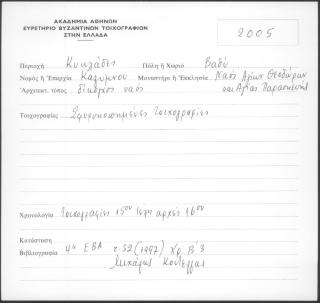 ΑΚΑΔΗΜΙΑ ΑΘΗΝΩΝ
ΕΥΡΕΤΗΡΙΟ ΒΥΖΑΝΤΙΝΩΝ ΤΟΙΧΟΓΡΑΦΙΩΝ
ΣΤΗΝ ΕΛΛΑΔΑ
2005
Περιοχή Κυκλάδες Πόλη ή Χωριό Βαθύ
Νομός ή Επαρχία Καλύμνου Μοναστήρι ή Εκκλησία Ναός Αγίων Θεοδώρων
Αρχιτεκτ. τύπος δίκλιτος ναός και Αγίας Παρασκευής
Τοιχογραφίες Σφυροκοπημένες τοιχογραφίες
Χρονολογία Τοιχογραφίες 15ου τέλη αρχές 16ου
Κατάσταση
Βιβλιογραφία 4η ΕΒΑ τ. 52 (1997) Χρ. Β΄3
Μιχάλης Κουτελλάς